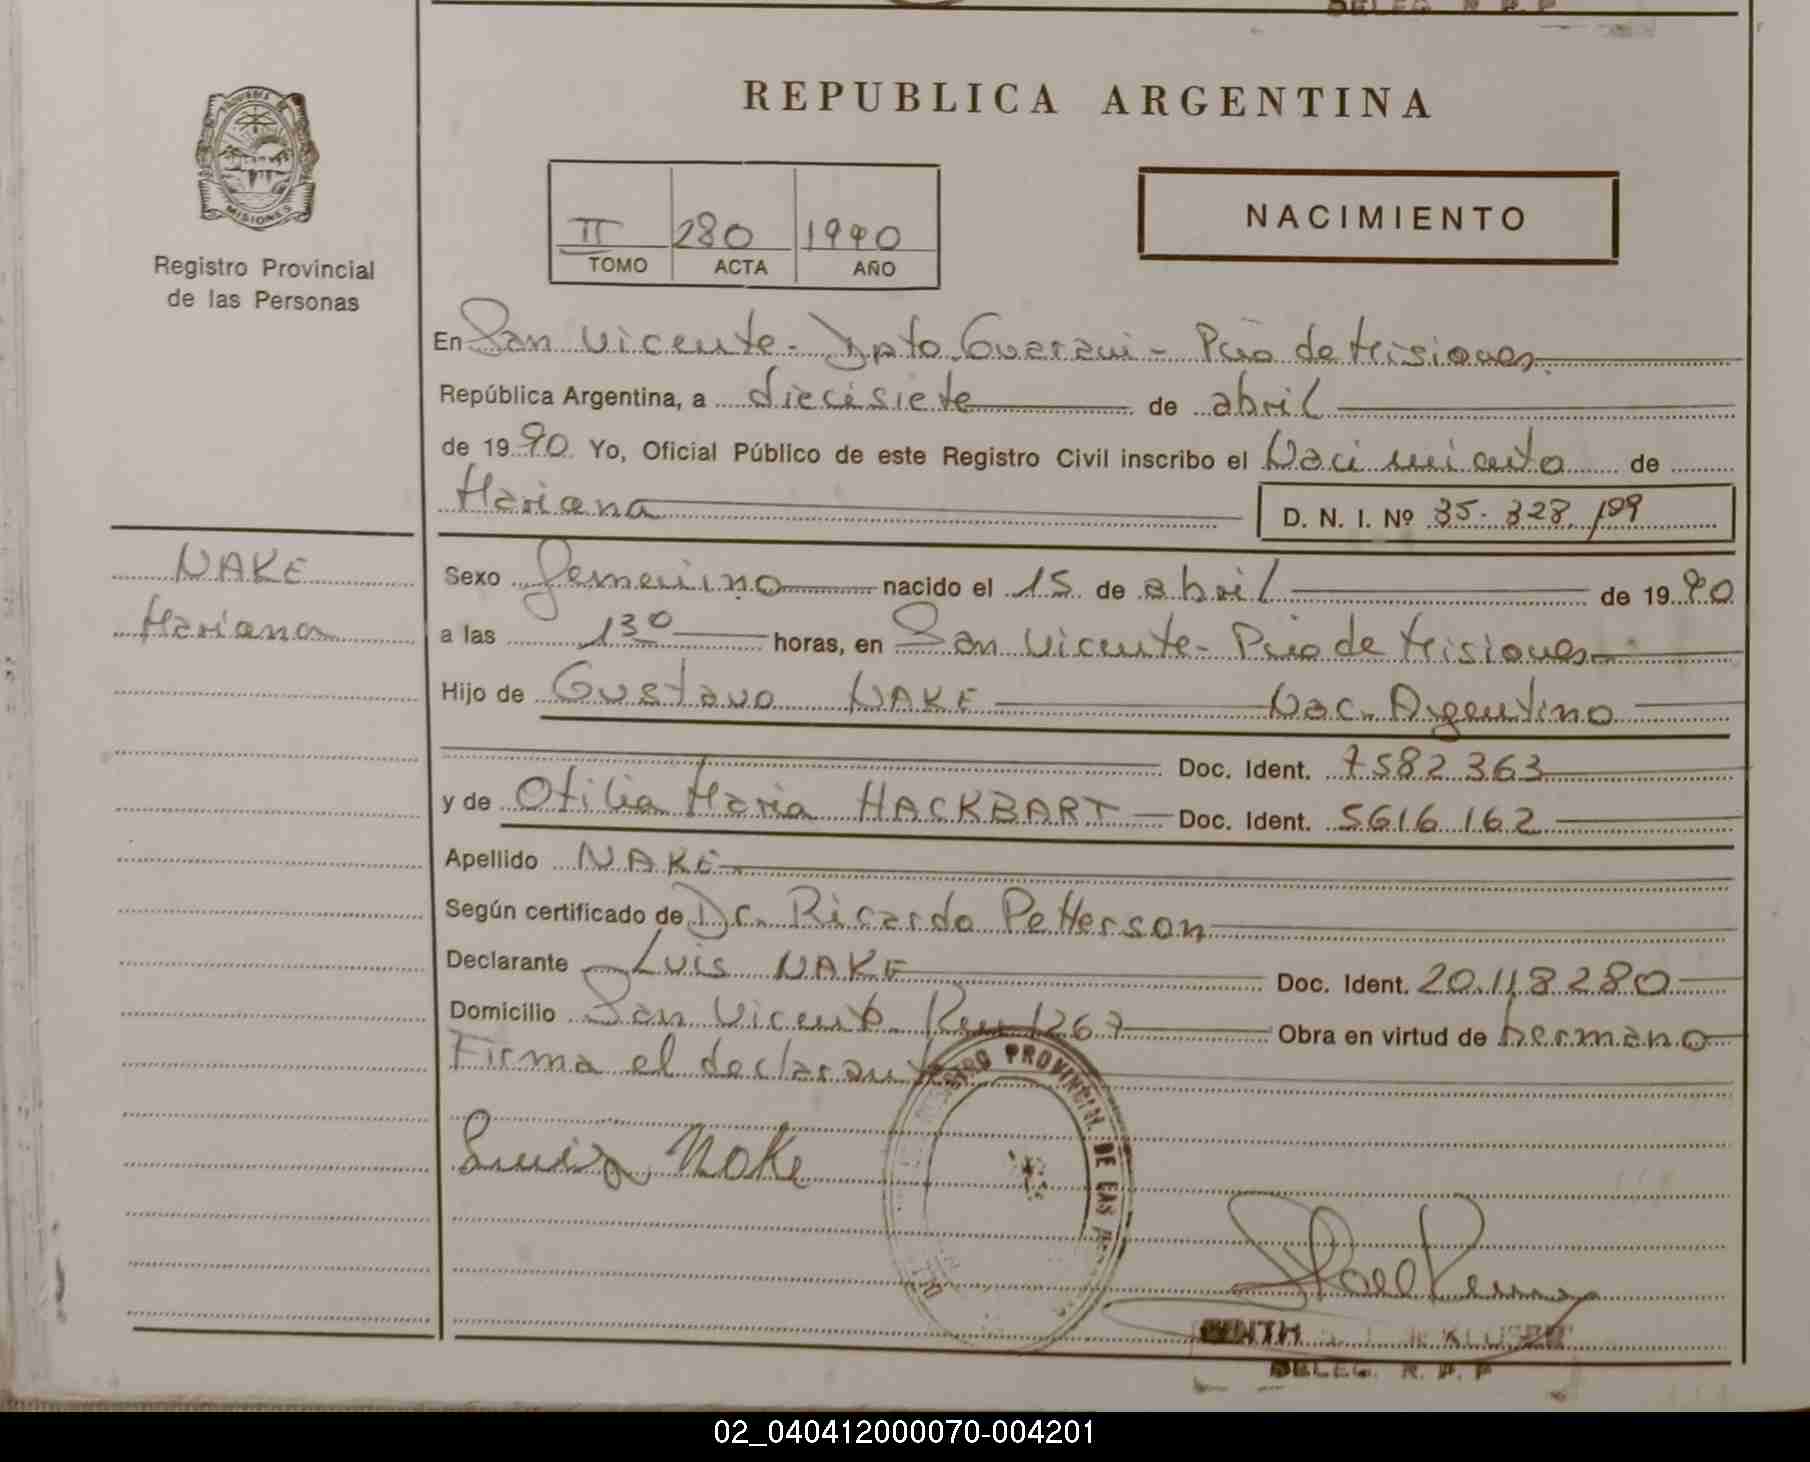 DELEG. R. P. P
REPUBLICA ARGENTINA
MISIONES
Registro Provincial
de las Personas
II 280 1990
TOMO ACTA AÑO
NACIMIENTO
En San Vicente - Dpto Guarani - Pcia de Misiones
República Argentina, a diecisiete de abril
de 1990 Yo, Oficial Público de este Registro Civil inscribo el Nacimiento de
Mariana D. N. I. Nº 35.328.199
NAKE
Mariana
Sexo femenino nacido el 15 de abril de 1990
a las 130 horas, en San Vicente - Pcia de Misiones
Hijo de Gustavo NAKE Nac. Argentino
Doc. Ident. 7582363
y de Otilia Maria HACKBART Doc. Ident. 5616162
Apellido NAKE
Según certificado de Dr. Ricardo Petterson
Declarante Luis NAKE Doc. Ident. 20.118280
Domicilio San Vicente 1267 Obra en virtud de hermano
Firma el declarante
REGISTRO PROVINCIAL DE LAS
Luiz Nake
DELEG. R. P. P
02_040412000070-004201